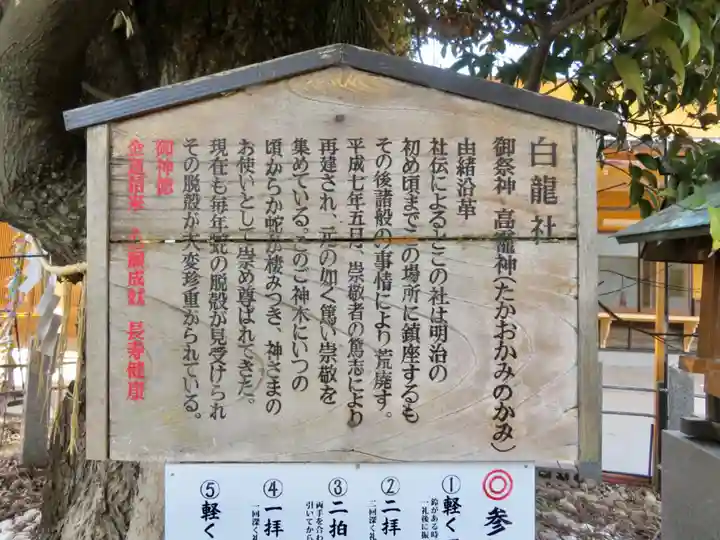 白龍社
御祭神 高龗神(たかおかみのかみ)
由緒沿革
社伝によるとここの社は明治の
初め頃までこの場所に鎮座するも
その後諸般の事情により荒廃す。
平成七年五月、崇敬者の篤志により
再建され、元の如く篤い崇敬を
集めている。このご神木にいつの
頃からか蛇が棲みつき、神さまの
お使いとして崇め尊ばれてきた。
現在も毎年蛇の脱殻が見受けられ
その脱殻が大変珍重がられている。
御神徳
金運招来 心願成就 長寿健康
◎参
①軽く
鈴がある時
一礼後に振
②二拝
二回深く
③二拍
両手を合わ
引いてから
④一拝
一回深く礼
⑤軽く